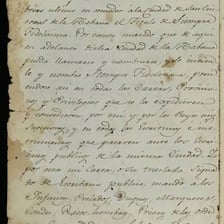 en conceder a la Ciudad de San
de la Habana el Titulo de Siempre
Fidelisima Por cuyo mando que de aqui
en adelante dicha Ciudad de la Habana
pueda llamarse y nombrarse, y se intitule
y nombre Siempre Fidelisima, poni
endolo asi en todas las Cartas Provisio
nes, y Privilegios que se la expidieren
y concedieren por mi, y por los Reyes mis
Succesores, y en todas las Escrituras e ins
trumentos que pasaren ante los Escri
banos publicos de la misma Ciudad. Y
por mi Carta, o su traslado Signa
do de Escribano publico, mando a los
Infantes, Prelados, Duques, Marqueses,
Condes, Ricos-hombres, Priores de las